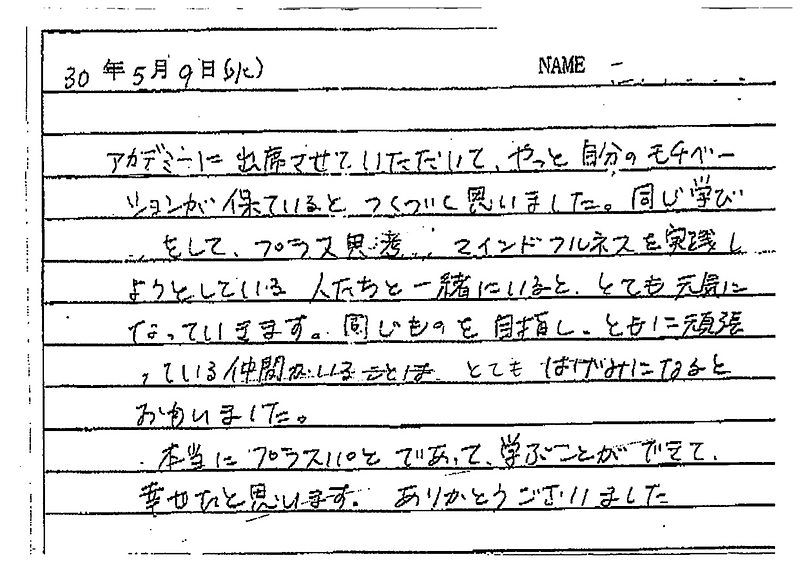 30年5月9日(火) NAME
アカデミーに出席させていただいて、やっと自分のモチベー
ションが保ていると つくづく思いました。同じ学び
をして、プラス思考、マインドフルネスを実践し
ようとしている 人たちと一緒にいると、とても元気に
なっていきます。同じものを目指し、ともに頑張
っている仲間がいることは とても はげみになると
おもいました。
本当にプラスパと であって、学ぶことが できて、
幸せだと思います。 ありがとうございました